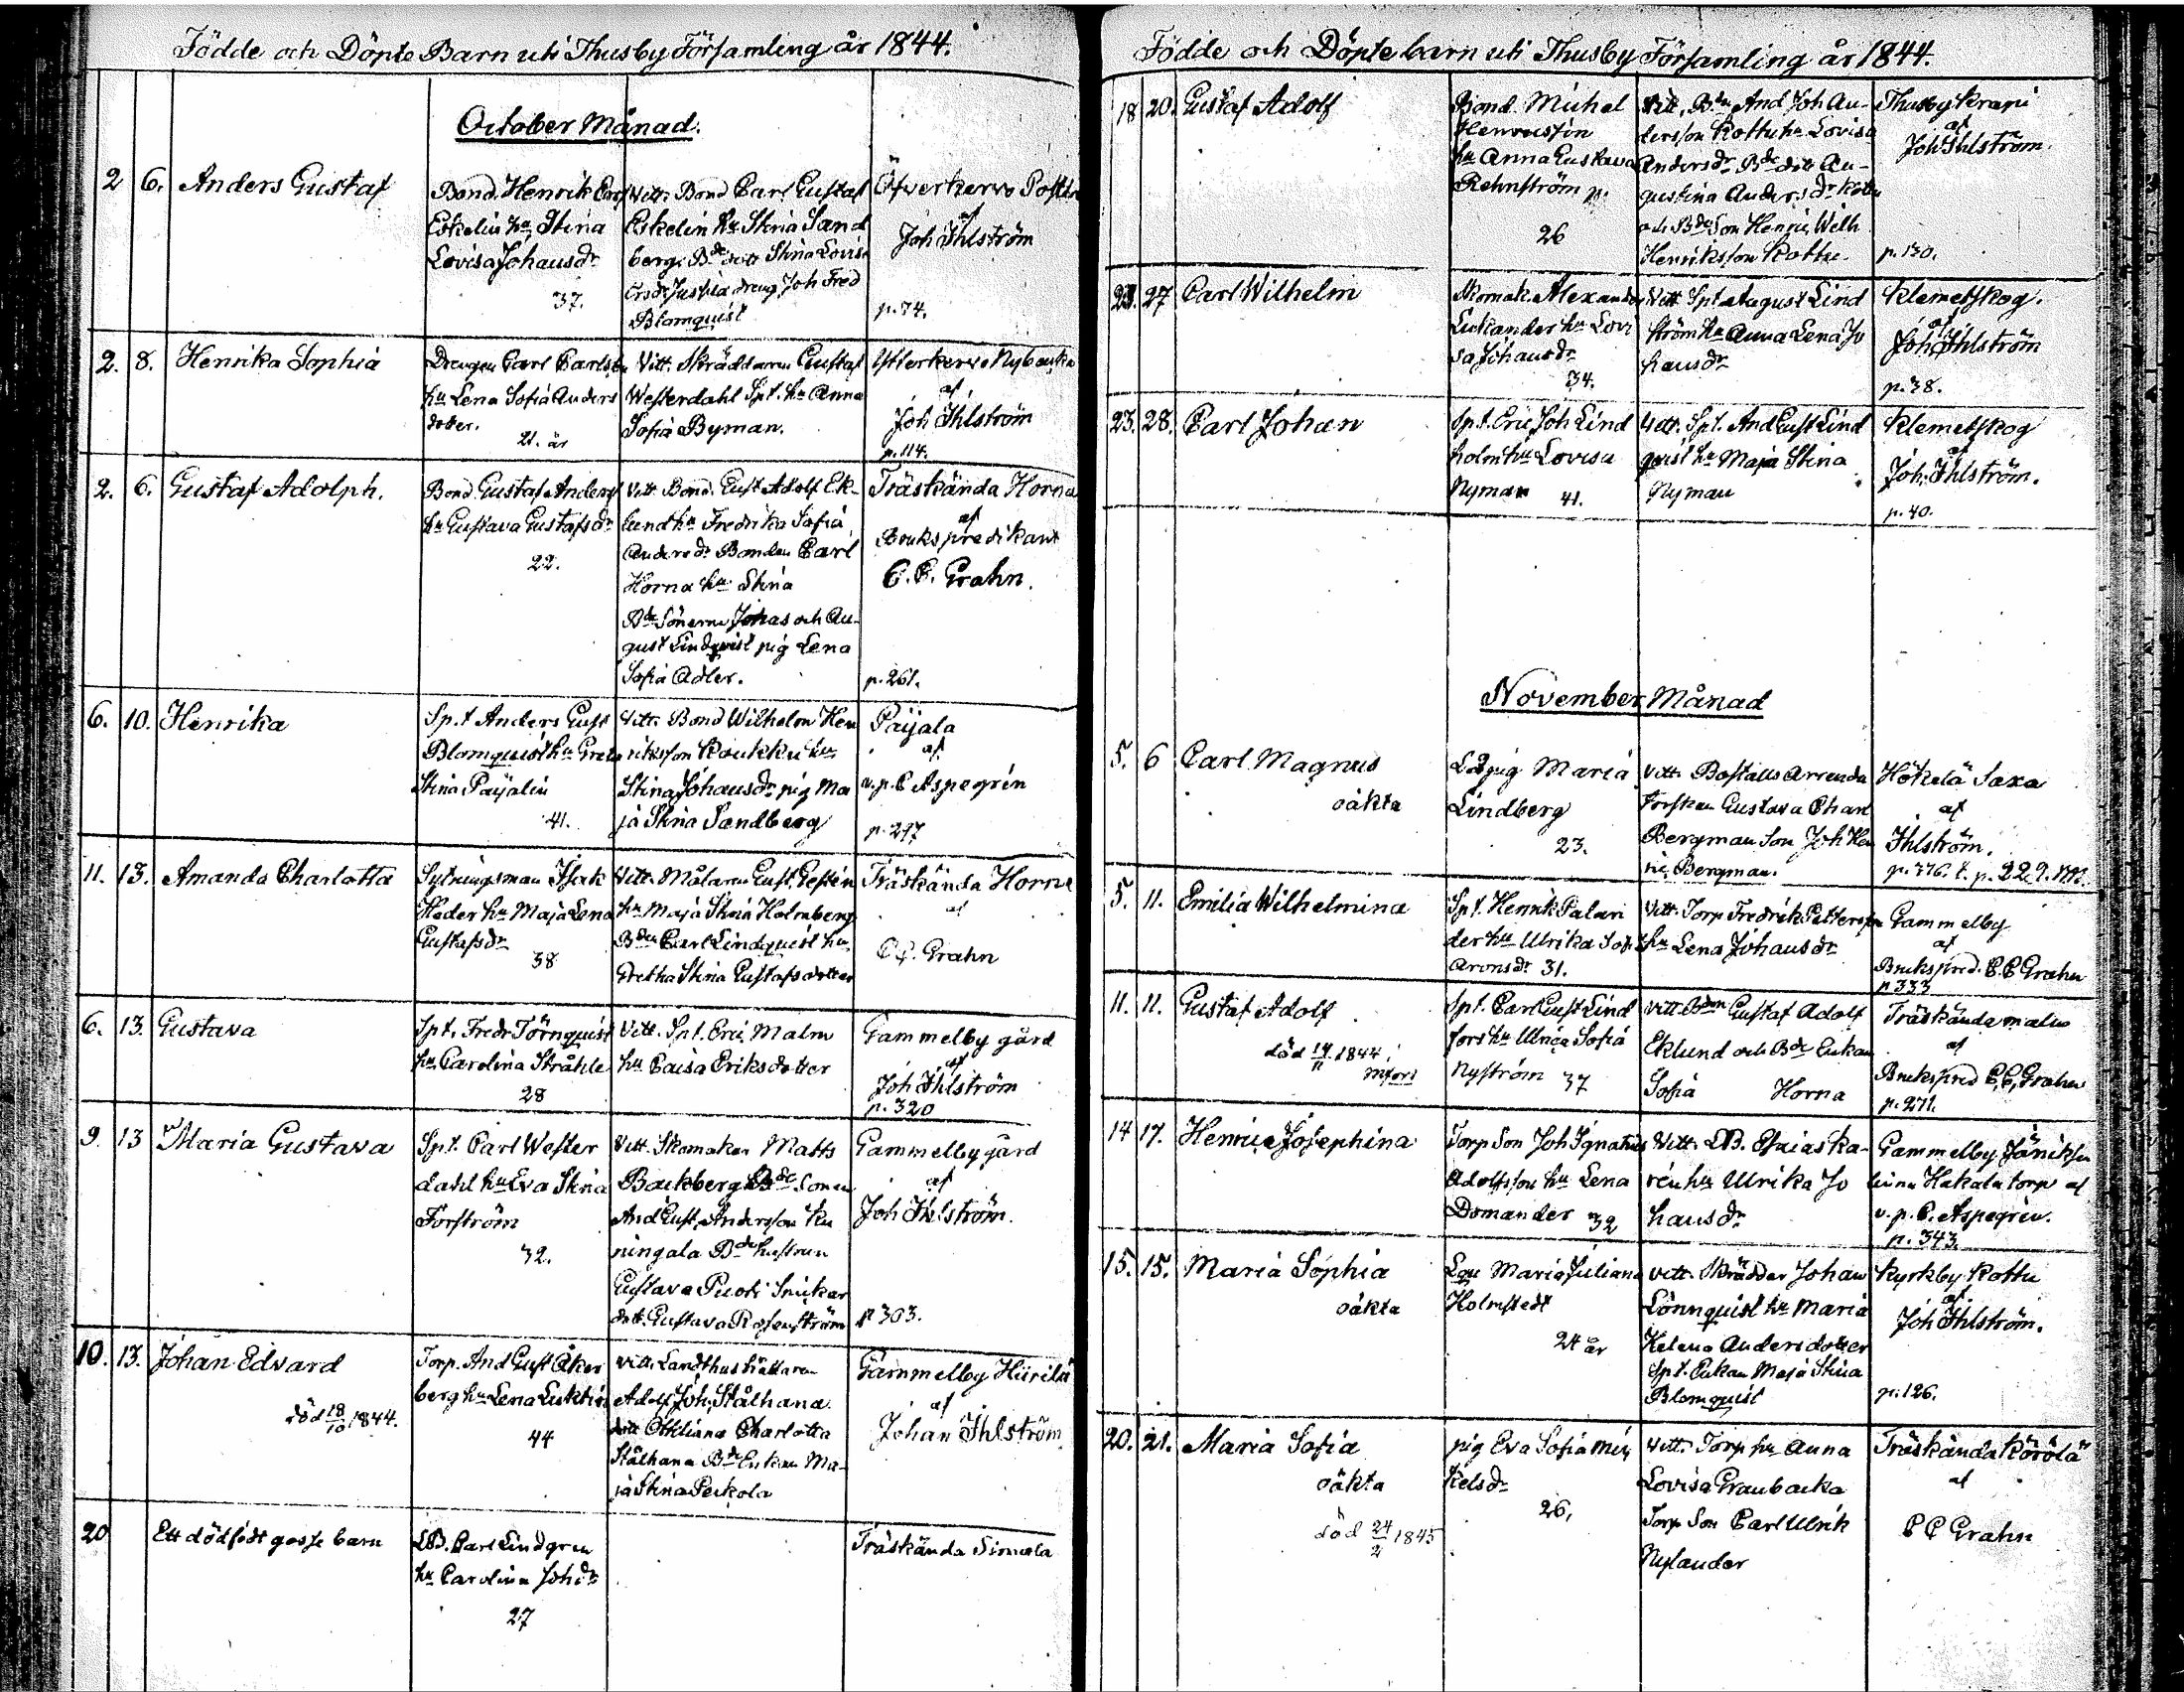 Födde och Döpte Barn uti Thusby Församling år 1844.
October Månad.
2 6. Anders Gustaf
Bond. Henrik
Eskelin hu Stina
Lovisa Johansdr
37.
Vitt. Bond Carl Gustaf
Eskelin hu Stina Sand
berg. Bde dott Stina Lovisa
dreng Joh Fred
Blomquist
Öfverkervo
af
Joh Ihlström
p. 74.
2. 8. Henrika Sophia
Drengen Carl Carlson
hu Lena Sofia Anders
doter.
21. år
Vitt. Skräddaren Gustaf
Westerdahl Spt. hu Anna
Sofia Byman.
Ytterkervo Nybacka
af
Joh Ihlström
p. 114.
2. 6. Gustaf Adolph.
Bond. Gustaf Anders
hu Gustava Gustafsdr
22.
Vitt. Bond. Gust Adolf Ek-
lund hu Fredrika Sofia
Andersdr Bonden Carl
Horna hu Stina
Bde Sönerne Johas och Au-
gust Lindqvist pig Lena
Sofia Adler.
Träskända Horna
af
Brukspredikant
C. C. Grahn.
p. 261.
6. 10. Henrika
Sp.t Anders Gust
Blomquist hu Greta
Stina Paijalin
41.
Vitt. Bond Wilhelm Hen
riksson Koukku hu
Stina Johansdr pig Ma
ja Stina Sandberg
Paijala
af
v. p. C Aspegrén
p. 297
11. 13. Amanda Charlotta
Sytningsman Isak
Heder hu Maja Lena
Gustafsdr
38
Vitt. Målaren Gust.
hu Maja Stina Holmberg
Bden Carl Lindquist hu
Gretha Stina Gustafsdotter
Träskända Horna
af
C C. Grahn
6. 13. Gustava
Spt. Fredr Törnquist
hu Carolina Stråhle
28
Vitt. Spt. Eric Malm
hu Caisa Eriksdotter
Gammelby gård
af
Joh Ihlström
p. 320
9. 13 Maria Gustava
Spt. Carl Wester
dahl hu Eva Stina
Forström
32.
Vitt. Skomakar Matts
Backberg Bde Sonen
And Gust. Andersson Ku
ningala Bde hustrun
Gustava Snikar
dott. Gustava Rosenström
Gammelby gård
af
Joh Ihlström.
p 303.
10. 13. Johan Edvard
död 18/10 1844.
Torp. And Gust Åker
berg hu Lena
44
Vitt. Landthushållaren
Adolf Joh. Stålhana
dott Ottiliana Charlotta
Stålhana Bde Enkan Ma-
ja Stina Peckola
Gammelby Hiirilä
af
Johan Ihlström
20 Ett dödfödt gosse barn
LB. Carl Lindgren
hu Carolina Johdr
27
Träskända Simola
Födde och Döpte barn uti Thusby Församling år 1844.
18 20. Gustaf Adolf
Bond. Michel
hu Anna Gustava
Rehnström p.
26
Vitt. Bdn And Joh An-
dersson Rottu hu Lovisa
Andersdr Bde dott Au-
gustina Andersdr
och Bde Son Henric Wilh
Henriksson Rottu
Thusby Krapi
af
Joh Ihlström.
p. 130.
23. 27 Carl Wilhelm
Skomak. Alexander
Lukander hu Lovi
sa Johansdr
34.
Vitt Spt August Lind
ström hu Anna Lena Jo
hansdr
Klemetskog.
af
Joh Ihlström
p. 38.
23. 28. Carl Johan
Spt. Eric Joh Lind
holm hu Lovisa
Nyman 41.
Vitt. Spt. And Gust Lind
quist hu Maja Stina
Nyman
Klemetskog
af
Joh. Ihlström.
p. 40.
November Månad
5. 6 Carl Magnus
oäkta
Maria
Lindberg
23.
Vitt. Boställs arrenda
torskan Gustava Charl
Bergman Son Joh Hen
ric Bergman.
Hötelä Saxa
af
Ihlström.
p. 376. t. p. 229.
5. 11. Emilia Wilhelmina
Spt. Henrik Palan
der hu Ulrika Sofi
Aronsdr 31.
Vitt. Torp Fredrik Petterson
hu Lena Johansdr
Gammelby
af
Brukspred. C C Grahn
p 333
11. 11. Gustaf Adolf
död 14/11 1844.
Spt. Carl Gust Lind
fors hu Ulrica Sofia
Nyström 37
Vitt. Bden Gustaf Adolf
Eklund och Bde Enkan
Sofia Horna
Träskända malm
af
Brukspred C. C. Grahn
p. 271.
14 17. Henrica Josephina
Torp Son Joh Ignatius
Adolfsson hu Lena
Domander 32
Vitt. LB. Esaias Ka-
rén hu Ulrika Jo
hansdr
Gammelby Jäniksen
linna Hakala torp af
v. p. C. Aspegrén.
p. 343.
15. 15. Maria Sophia
oäkta
Maria Juliana
Holmstedt
24 år
Vitt. Skrädder Johan
Lönnquist hu Maria
Helena Andersdotter
Spt. Enkan Maja Stina
Blomquist
Kyrkby Rottu
af
Joh Ihlström.
p. 126.
20. 21. Maria Sofia
oäkta
död 24/2 1845
pig Eva Sofia Mic
kelsdr
26,
Vitt. Torp hu Anna
Lovisa Granbacka
Torp Son Carl Ulrik
Nylander
Träskända Körölä
af
C C Grahn